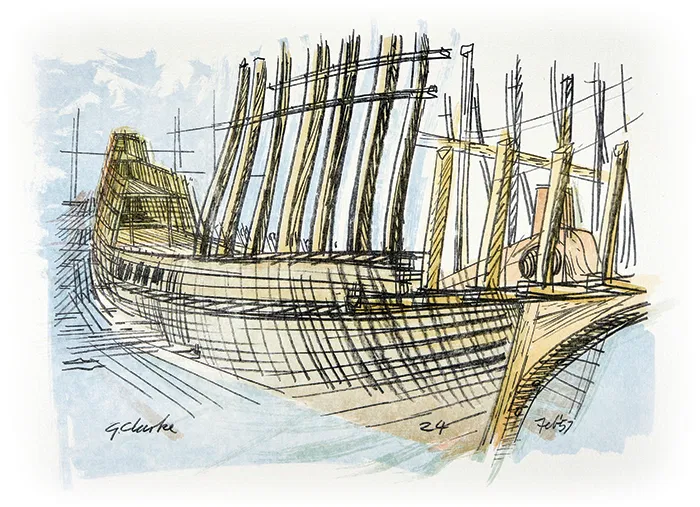 G. Clarke 24 Feb 57